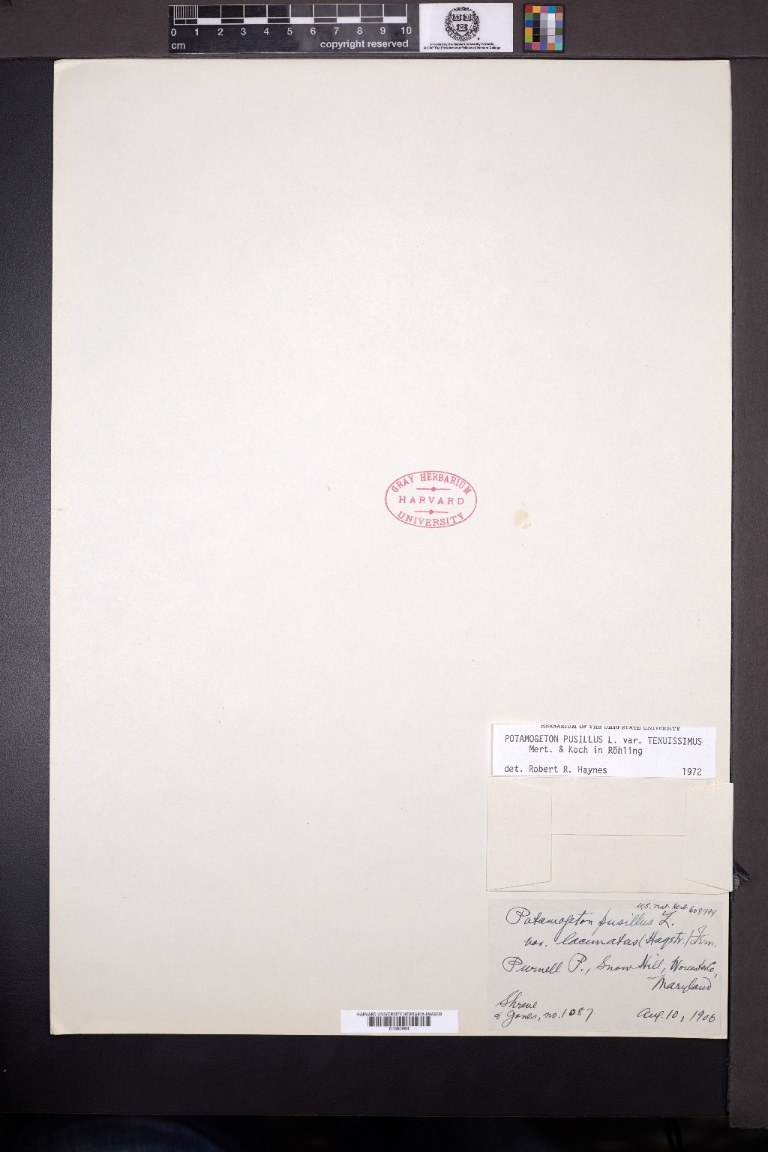 0 1 2 3 4 5 6 7 8 9 10
cm
copyright reserved
GRAY HERBARIUM
HARVARD
UNIVERSITY
HERBARIUM OF THE OHIO STATE UNIVERSITY
POTAMOGETON PUSILLUS L. var. TENUISSIMUS
Mert. & Koch in Röhling
det. Robert R. Haynes 1972
U.S. Nat. Herb.
Potamogeton pusillus L.
var. lacunatus (Hagstr.)
Purnell P., Snow Hill, Worcester Co.,
Maryland
Shreve
& Jones, no. 1087 Aug. 10, 1906